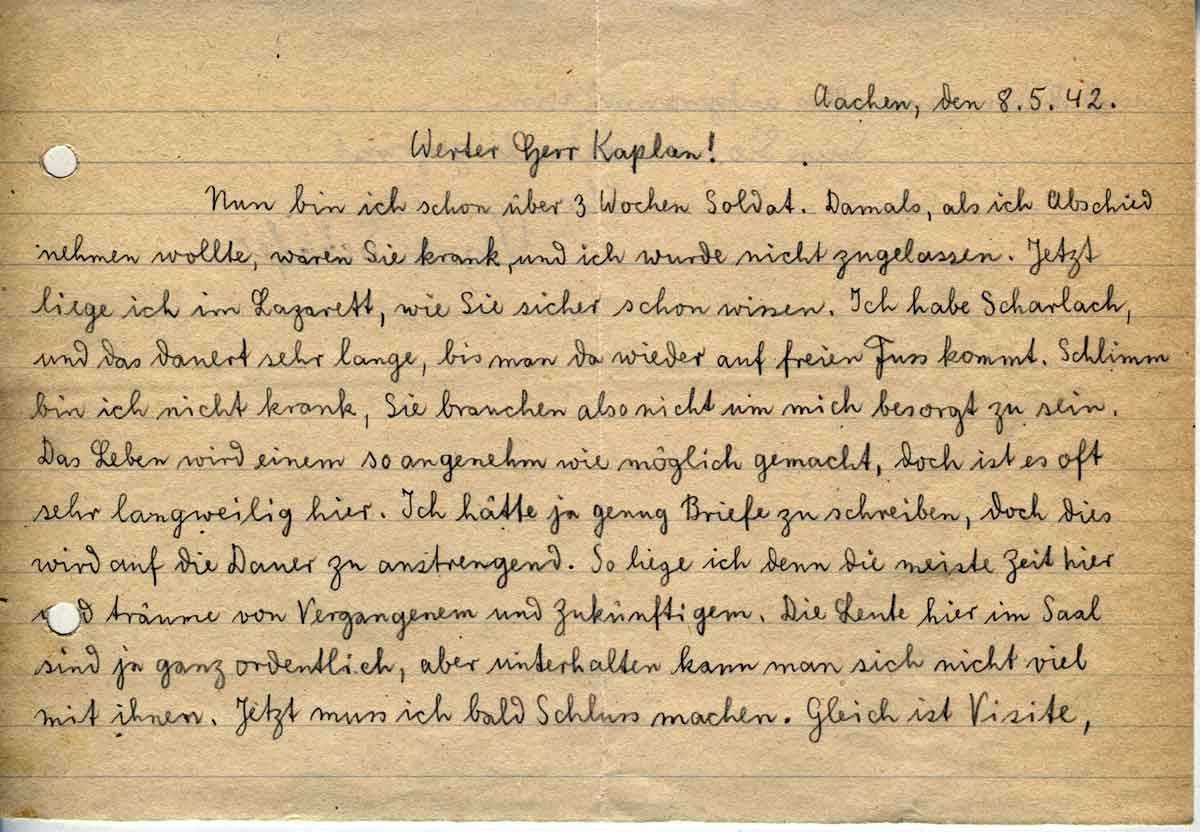 Aachen, den 8.5.42.
Werter Herr Kaplan!
Nun bin ich schon über 3 Wochen Soldat. Damals, als ich Abschied
nehmen wollte, waren Sie krank, und ich wurde nicht zugelassen. Jetzt
liege ich im Lazarett, wie Sie sicher schon wissen. Ich habe Scharlach,
und das dauert sehr lange, bis man da wieder auf freien Fuss kommt. Schlimm
bin ich nicht krank, Sie brauchen also nicht um mich besorgt zu sein.
Das Leben wird einem so angenehm wie möglich gemacht, doch ist es oft
sehr langweilig hier. Ich hätte ja genug Briefe zu schreiben, doch dies
wird auf die Dauer zu anstrengend. So liege ich denn die meiste Zeit hier
und träume von Vergangenem und Zukünftigem. Die Leute hier im Saal
sind ja ganz ordentlich, aber unterhalten kann man sich nicht viel
mit ihnen. Jetzt muss ich bald Schluss machen. Gleich ist Visite,